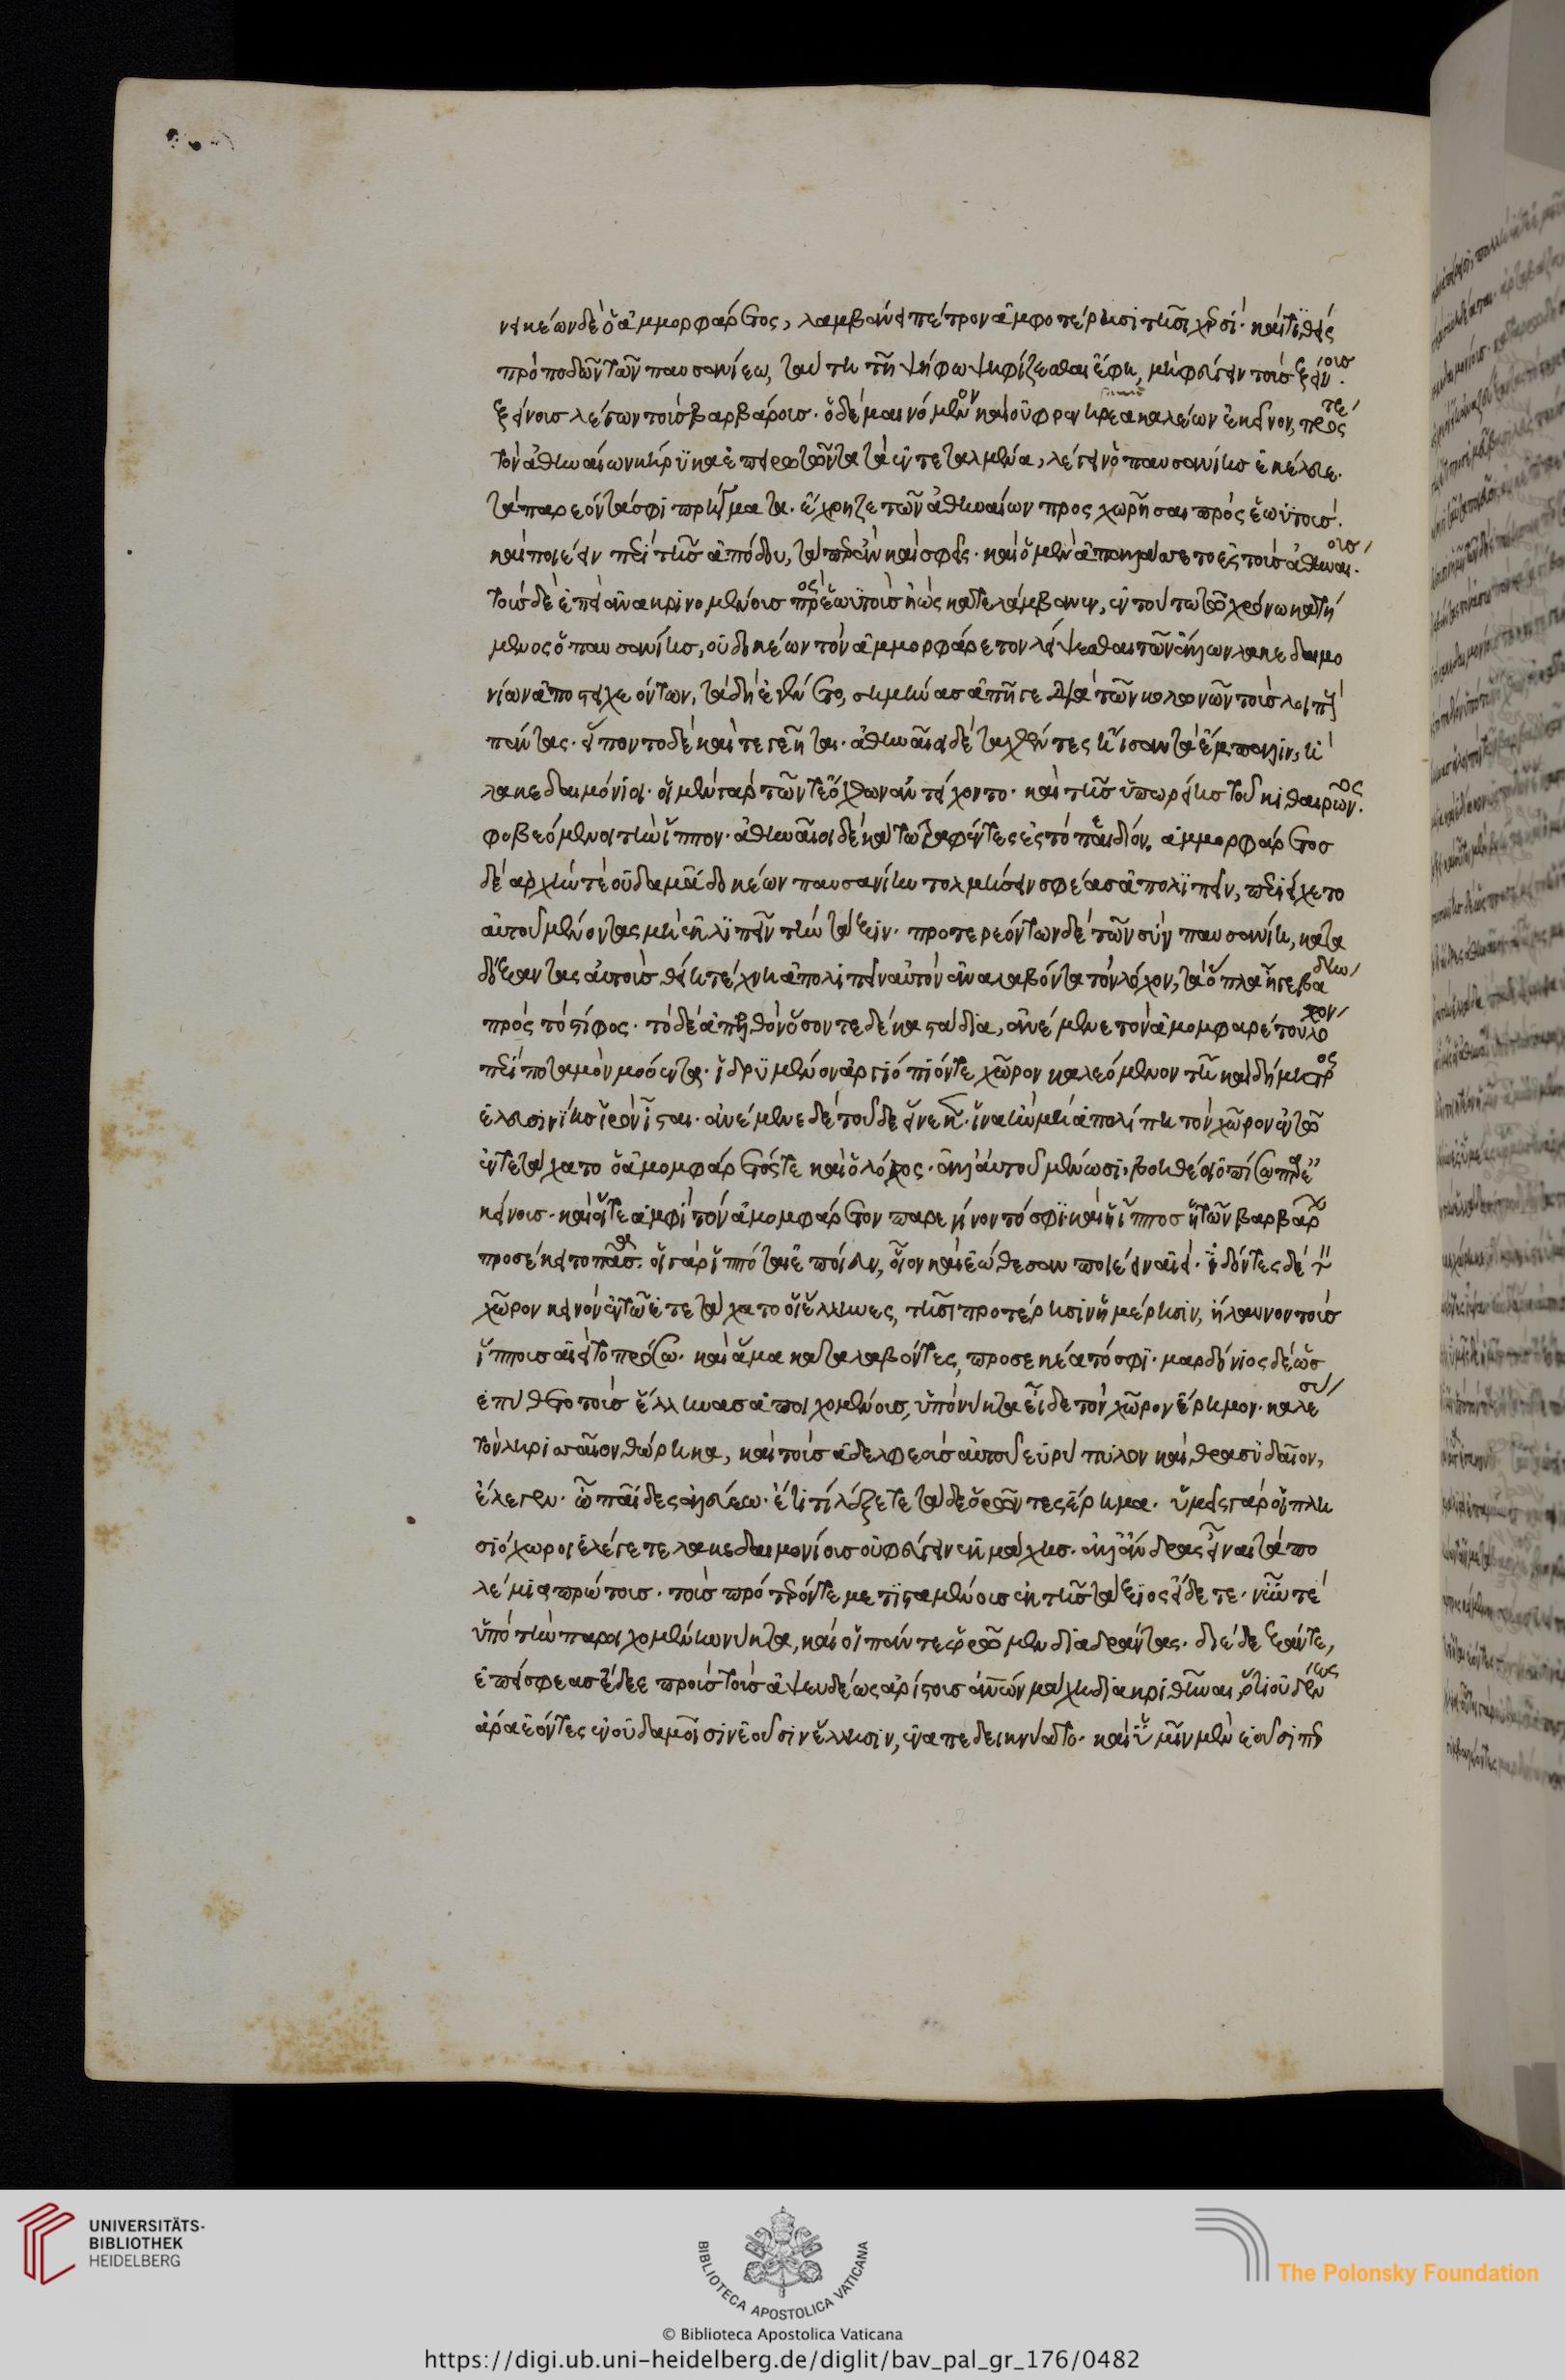 νεικέων δὲ ὁ ἀμμορφάρετος, λαμβάνει πέτρον ἀμφοτέρηισι τῆισι χερσί· καὶ τιθεὶς
πρὸ ποδῶν τῶν παυσανίεω, ταύτη τῆ ψήφω ψηφίζεσθαι ἔφη, μὴ φεύγειν τοὺς ξείνους·
ξείνους λέγων τοὺς βαρβάρους· ὁ δὲ μαινόμενον καὶ οὐ φρενήρεα καλέων ἐκεῖνον, πρός τε
τὸν ἀθηναίων κήρυκα ἐπειρωτῶντα τὰ ἐντεταλμένα, λέγειν ὁ παυσανίης ἐκέλευε·
τὰ παρεόντα σφι πρήγματα· ἔχρηζε τῶν ἀθηναίων προσχωρῆσαι πρὸς ἑωυτούς·
καὶ ποιέειν περὶ τῆς ἀπόδου, τάπερ ἂν καὶ σφεῖς· καὶ ὁ μὲν ἀπαλλάσσετο ἐς τοὺς ἀθηναίους·
τοὺς δὲ ἐπεὶ ἀνακρινομένους πρὸς ἑωυτοὺς ἠὼς κατελάμβανεν, ἐν τούτω τῶ χρόνω κατή
μενος ὁ παυσανίης, οὐ δοκέων τὸν ἀμμορφάρετον λείψεσθαι τῶν ἄλλων λακεδαιμο
νίων ἀποστειχεόντων, τὰ δὴ ἐγένετο, σημήνας ἀπῆγε διὰ τῶν κολωνῶν τοὺς λοιποὺς
πάντας· εἵποντο δὲ καὶ τεγεῆται· ἀθηναῖοι δὲ ταχθέντες ἤισαν τὰ ἔμπαλιν, ἢ
λακεδαιμόνιοι· οἱ μὲν γὰρ τῶν τε ὄχθων ἀντείχοντο· καὶ τῆς ὑπωρείης τοῦ κιθαιρῶνος·
φοβεόμενοι τὴν ἵππον· ἀθηναῖοι δὲ κάτω τραφέντες ἐς τὸ πεδίον, ἀμμορφάρετος
δὲ ἀρχήν τε οὐδαμᾶ δοκέων παυσανίην τολμήσειν σφέας ἀπολιπεῖν, περιείχετο
αὐτοῦ μένοντας μὴ ἐκλιπεῖν τὴν τάξιν· προτερεόντων δὲ τῶν σὺν παυσανίη, κατα
δόξαντας αὐτοὺς ἰθείη τέχνη ἀπολιπεῖν αὐτὸν ἀναλαβόντα τὸν λόχον, τὰ ὅπλα ἦγε βάδην
πρὸς τὸ στῖφος· τὸ δὲ ἀπελθὸν ὅσον τε δέκα στάδια, ἀνέμενε τὸν ἀμομφαρέτου λόχον
περὶ ποταμὸν μολόεντα· ἱδρυμένον ἀργιόπιόν τε χῶρον καλεόμενον τῆ καὶ δήμητρος
ἐλευσινίης ἱρὸν ἧσται· ἀνέμενε δὲ τοῦδε εἵνεκεν· ἵνα ἢν μὴ ἀπολίπη τὸν χῶρον ἐν τῶ
ἐντετάχατο ὁ ἀμομφάρετός τε καὶ ὁ λόχος· ἀλλ' αὐτοῦ μένωσι, βοηθέοι ὀπίσω παρ' ἐ
κείνους· καὶ οἵ τε ἀμφὶ τὸν ἀμομφάρετον παρεγίνοντό σφι· καὶ ἡ ἵππος ἡ τῶν βαρβάρων
προσέκειτο πᾶσα· οἱ γὰρ ἱππόται ἐποίευν, οἷον καὶ ἐώθεσαν ποιέειν αἰεί· ἰδόντες δὲ τὸν
χῶρον κεινὸν ἐν τῶ ἐτετάχατο οἱ ἕλληνες, τῆισι προτέρηισιν ἡμέρηισιν, ἤλαυνον τοὺς
ἵππους αἰεὶ τὸ πρόσω· καὶ ἅμα καταλαβόντες, προσεκέατό σφι· μαρδόνιος δὲ ὡς
ἐπύθετο τοὺς ἕλληνας ἀποιχομένους, ὑπὸ νύκτα εἶδε τὸν χῶρον ἔρημον· καλέσας
τὸν ληρισσαῖον θώρηκα, καὶ τοὺς ἀδελφεοὺς αὐτοῦ εὐρύπυλον καὶ θρασυδαῖον,
ἔλεγεν· ὦ παῖδες ἀλεύεω· ἔτι τί λέξετε τάδε ὁρῶντες ἔρημα· ὑμεῖς γὰρ οἱ πλη
σιόχωροι ἐλέγετε λακεδαιμονίους οὐ φεύγειν ἐκ μάχης· ἀλλ' ἄνδρας εἶναι τὰ πο
λέμια πρώτους· τοὺς πρότερόν τε μετισταμένους ἐκ τῆς τάξιος εἴδετε· νῦν τε
ὑπὸ τὴν παροιχομένην νύκτα, καὶ οἱ πάντες ὁρῶμεν διαδράντας· διέδεξάν τε,
ἐπεί σφεας ἔδεε πρὸς τοὺς ἀψευδέως ἀρίστους ἀνθρώπων μάχη διακριθῆναι, ὅτι οὐδένες
ἄρα ἐόντες ἐν οὐδαμοῖσιν ἐοῦσιν ἕλλησιν, ἐναπεδεικνύατο· καὶ ὑμῖν μὲν ἐοῦσι περ
UNIVERSITÄTS-
BIBLIOTHEK
HEIDELBERG
BIBLIOTECA APOSTOLICA VATICANA
The Polonsky Foundation
© Biblioteca Apostolica Vaticana
https://digi.ub.uni-heidelberg.de/diglit/bav_pal_gr_176/0482